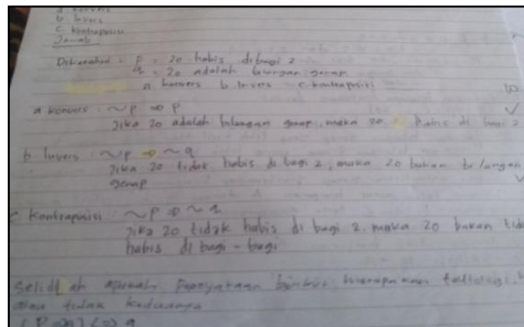 a. konvers
b. Invers
c. kontraposisi
Jawab:
Diketahui = p = 20 habis dibagi 2
q = 20 adalah bilangan genap
a konvers b. Invers c. kontraposisi
a konvers : ~p ⇒ p
Jika 20 adalah bilangan genap, maka 20 habis di bagi 2
b Invers : ~p ⇒ ~q
Jika 20 tidak habis di bagi 2, maka 20 bukan bilangan
genap
c kontraposisi : ~p ⇒ ~q
Jika 20 tidak habis di bagi 2, maka 20 bukan
habis di bagi - bagi
apakah pernyataan berikut merupakan
atau tidak keduanya